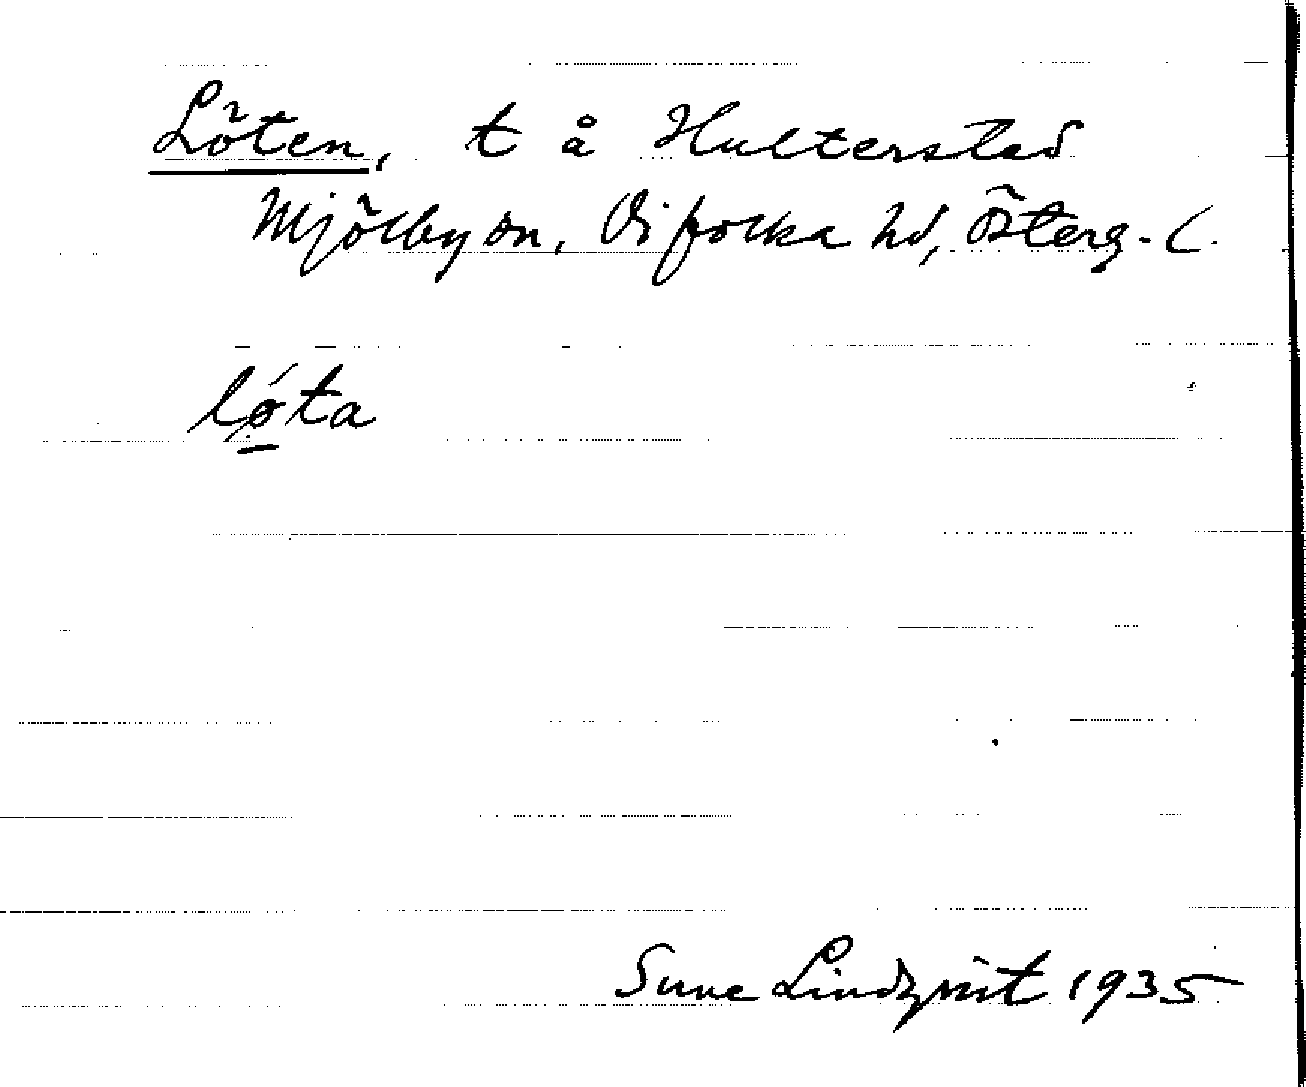 Löten, t å Hulterstad
Mjölby sn, Vifolka hd, Österg. l.
lǿ̱ta
Sune Lindqvist 1935